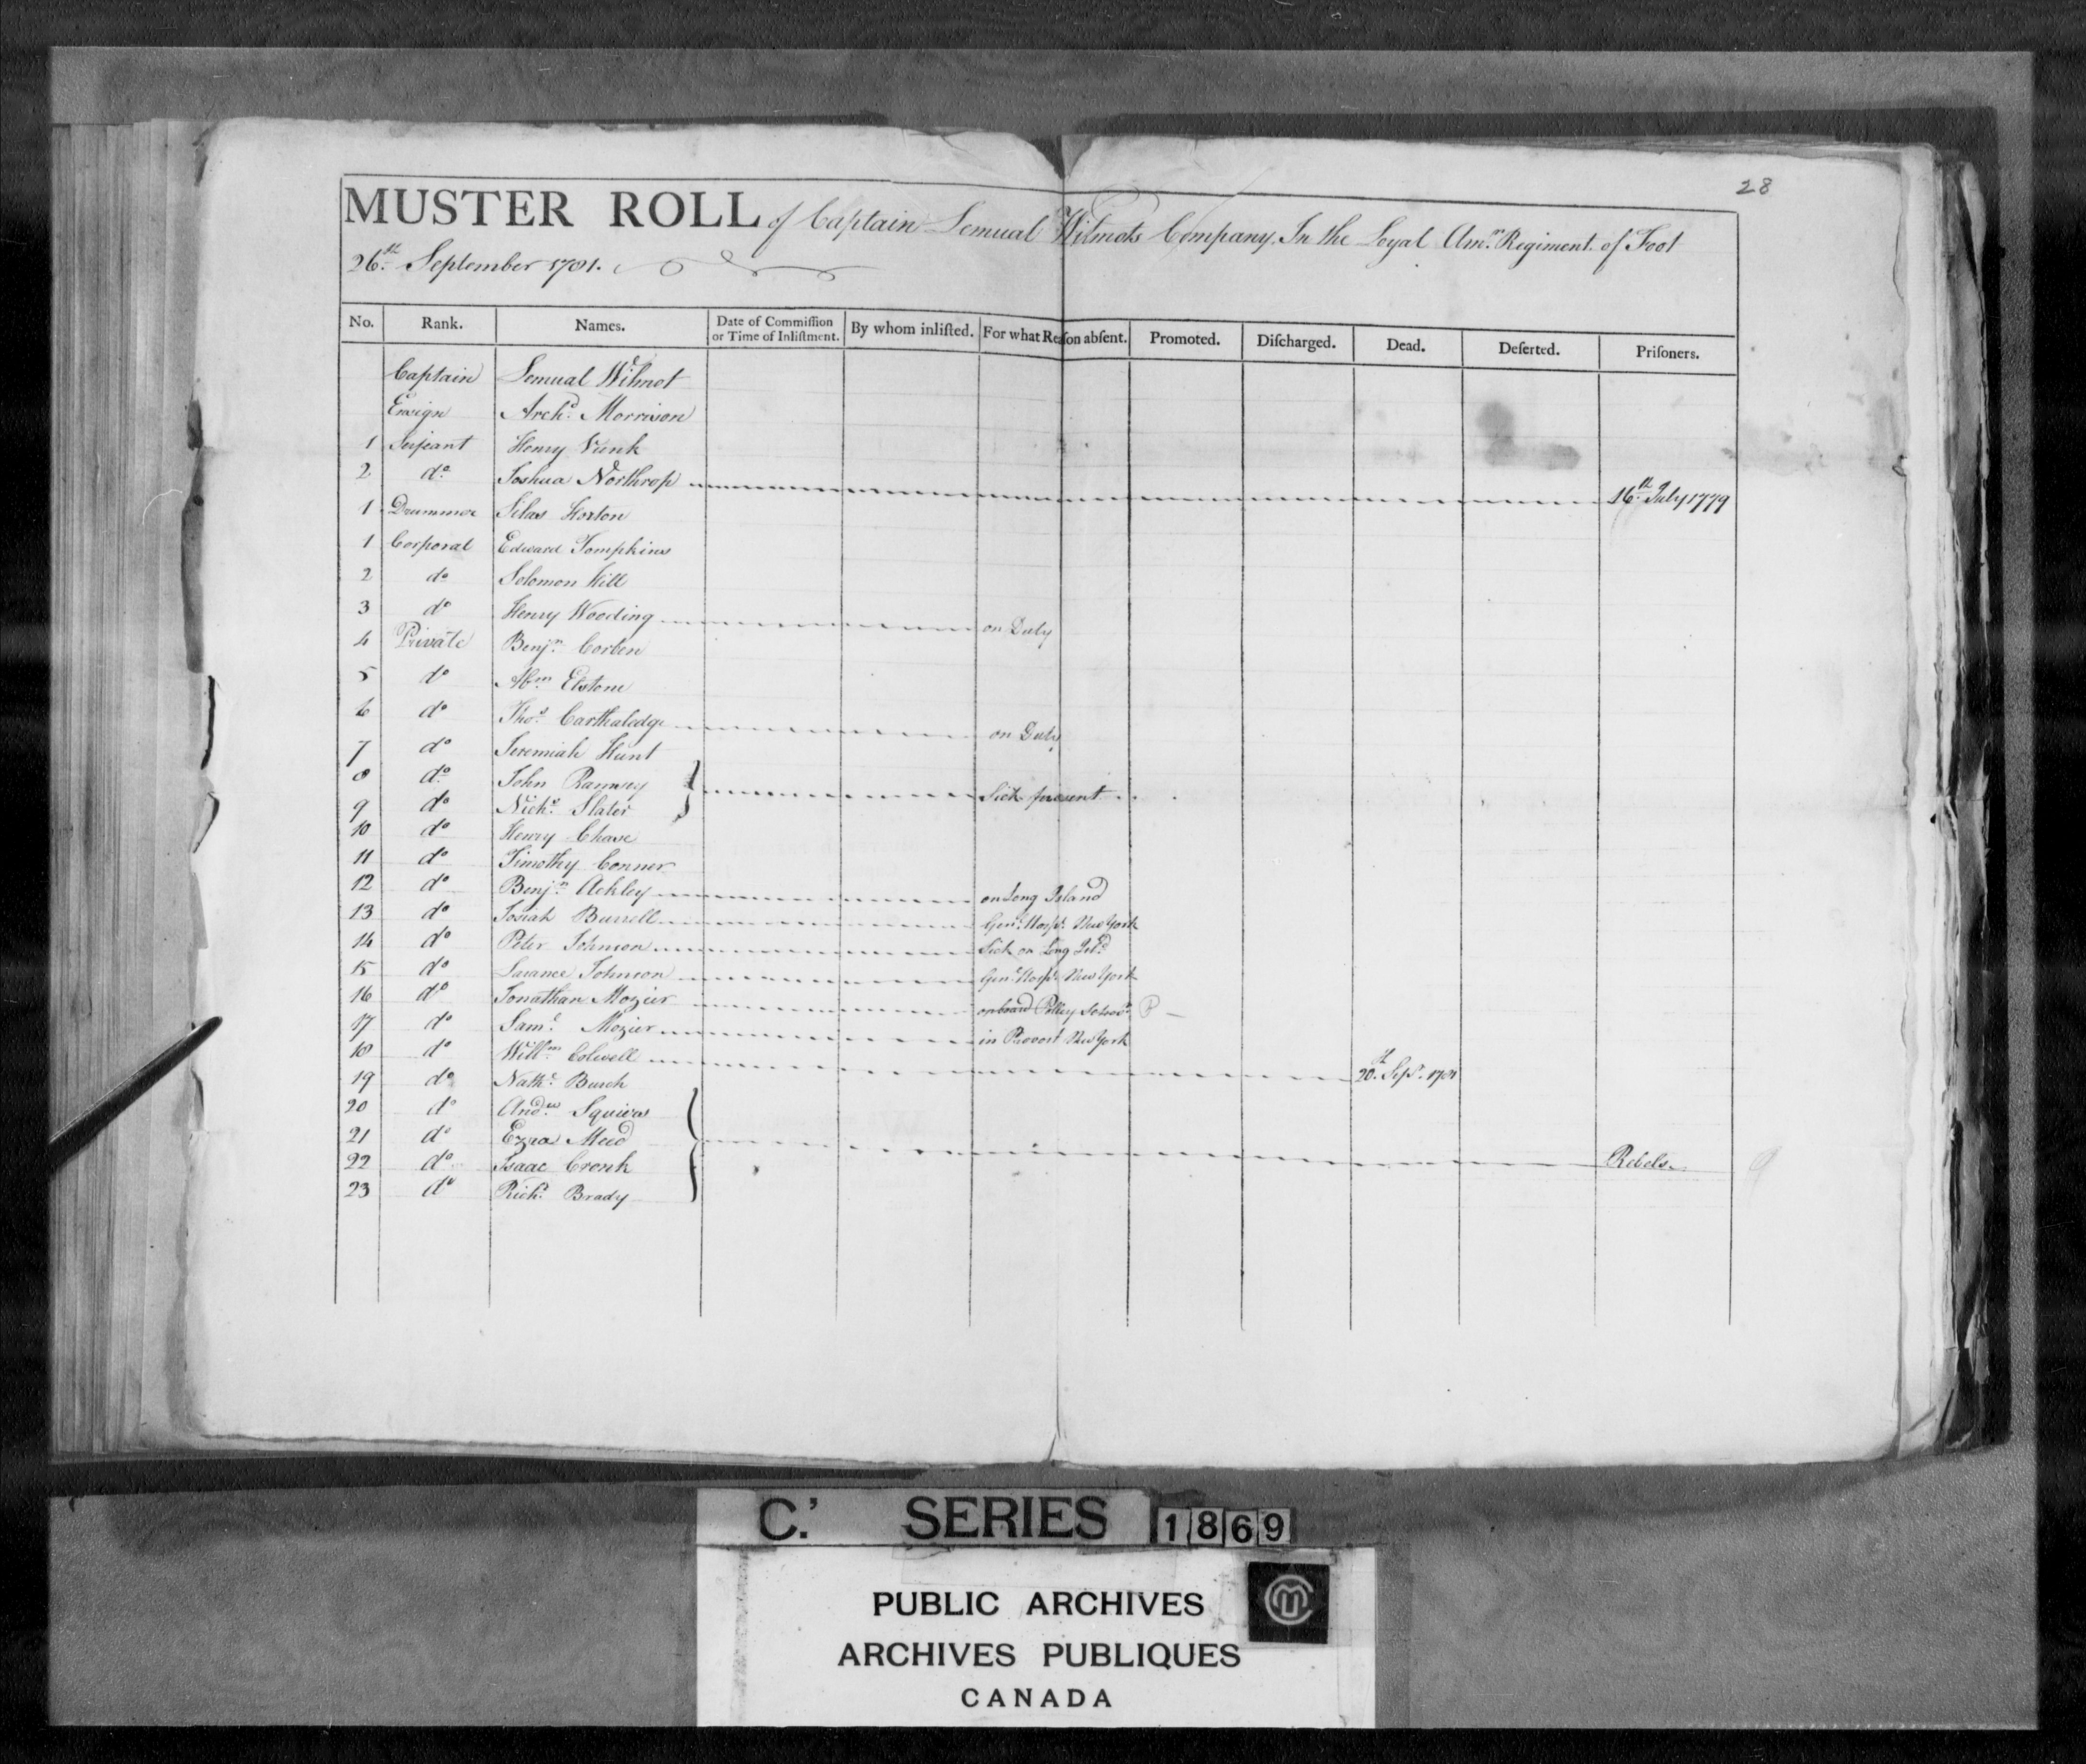 28
MUSTER ROLL of Captain Lemual Wilmots Company In the Loyal Amn. Regiment of Foot
26th. September 1781.
No. Rank. Names. Date of Commiſſion or Time of Inliſtment. By whom inliſted. For what Reaſon abſent. Promoted. Diſcharged. Dead. Deſerted. Priſoners.
Captain Lemual Wilmot
Ensign Archd. Morrison
1 Serjeant Henry Vunk
2 do. Joshua Northrop 16th July 1779
1 Drummer Silas Horton
1 Corporal Edward Tompkins
2 do Solomon Hill
3 do Henry Wooding on Duty
4 Private Benjn. Corben
5 do Abm Elstone
6 do Thos. Carthaledge on Duty
7 do Jeremiah Hunt
8 do. John Ramsey } Sick present
9 do Nichs. Slater
10 do Henry Chase
11 do Timothy Conner
12 do Benjn. Ackley on Long Island
13 do Josiah Burrell Genl. Hospl. New York
14 do Peter Johnson Sick on Long Isld
15 do Larance Johnson Genl. Hospl. New York
16 do Jonathan Mozier on board P
17 do Saml. Mozier in Provost New York
18 do Willm Colwell 20th. Sepr. 1781
19 do Nathl. Burch
20 do Andw. Squires
21 do Ezra Mead } Rebels
22 do Isaac Cronk
23 do Richd. Brady
C.' SERIES 1869
PUBLIC ARCHIVES
ARCHIVES PUBLIQUES
CANADA